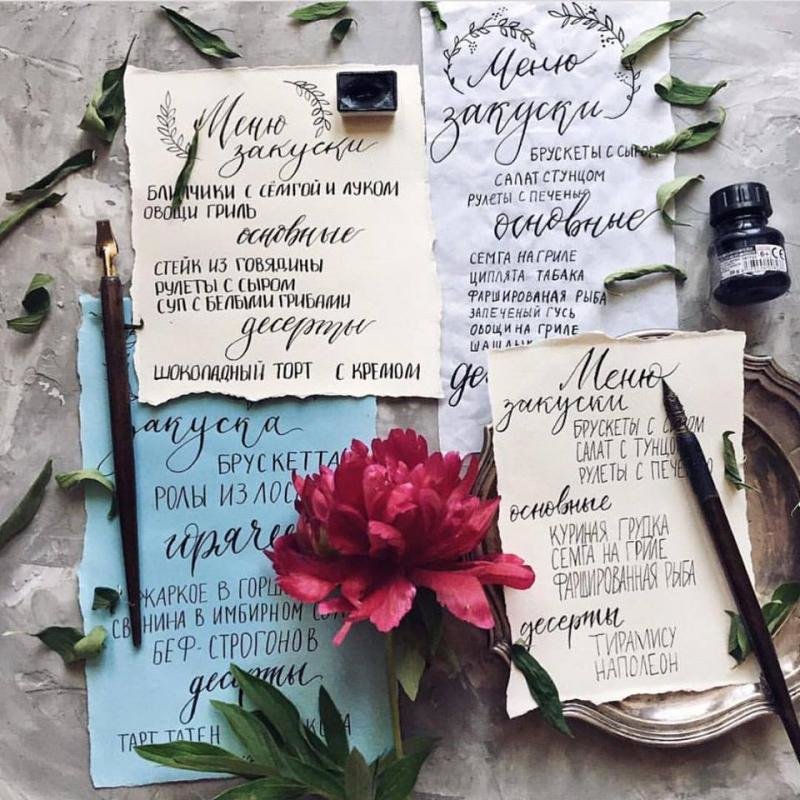 Меню
закуски
БЛИНЧИКИ С СЁМГОЙ И ЛУКОМ
ОВОЩИ ГРИЛЬ
основные
СТЕЙК ИЗ ГОВЯДИНЫ
РУЛЕТЫ С СЫРОМ
СУП С БЕЛЫМИ ГРИБАМИ
десерты
ШОКОЛАДНЫЙ ТОРТ С КРЕМОМ
Меню
закуски
БРУСКЕТЫ С СЫРОМ
САЛАТ С ТУНЦОМ
РУЛЕТЫ С ПЕЧЕНЬЮ
основные
СЕМГА НА ГРИЛЕ
ЦИПЛЯТА ТАБАКА
ФАРШИРОВАНАЯ РЫБА
ЗАПЕЧЕНЫЙ ГУСЬ
ОВОЩИ НА ГРИЛЕ
закуска
БРУСКЕТТА
РОЛЫ ИЗ
ЖАРКОЕ В
В ИМБИРНОМ
БЕФ-СТРОГОНОВ
десерты
ТАРТ ТАТЕН
Меню
закуски
БРУСКЕТЫ С СЫРОМ
САЛАТ С ТУНЦОМ
РУЛЕТЫ С
основные
КУРИНАЯ ГРУДКА
СЕМГА НА ГРИЛЕ
ФАРШИРОВАННАЯ РЫБА
десерты
ТИРАМИСУ
НАПОЛЕОН